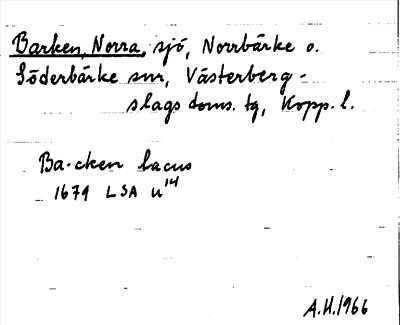 Barken, Norra, sjö, Norrbärke o.
Söderbärke snr, Västerberg-
slags doms. tg, Kopp. l.
Ba-cken lacus
1679 LSA u¹⁴
A.H. 1966